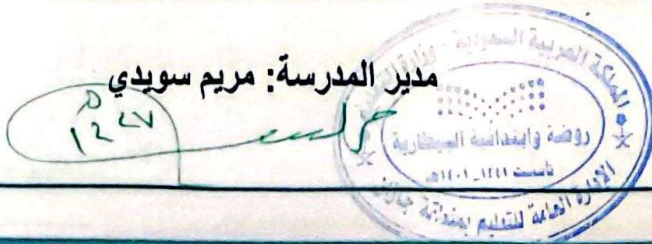 مدير المدرسة: مريم سويدي
المملكة العربية السعودية - وزارة
روضة وابتدائية البيطارية
تأسست ١٤٤١-١٤٠١هـ
الإدارة العامة للتعليم بمنطقة جازان